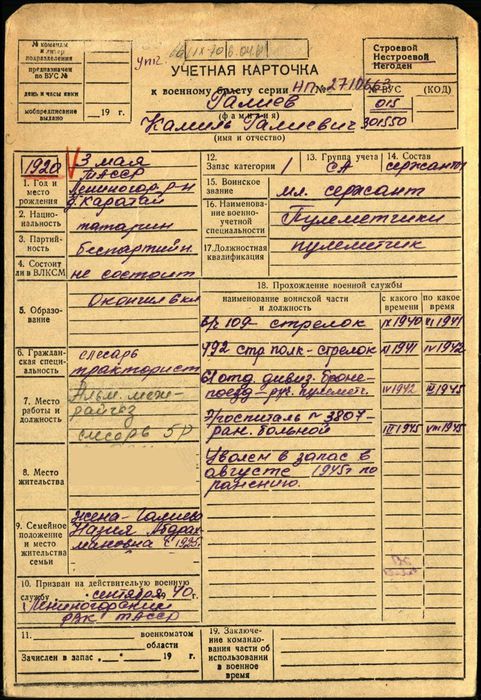 № команды
и литер
подразделения
предназначен
по ВУС №
день и часы явки
мобпредписание
выдано „ “ 19 г.
Строевой
Нестроевой
Негоден
УЧЕТНАЯ КАРТОЧКА
к военному билету серии НП № 2710663
№ ВУС (КОД)
Галиев
015
(фамилия)
Камиль Галиевич 301550
(имя и отчество)
1920
3 мая
ТАССР
Лениногор. р-н
д. Каратай
1. Год и
место
рождения
2. Нацио-
нальность
татарин
3. Партий-
ность
беспартийн.
4. Состоит
ли в ВЛКСМ
не состоит
5. Образо-
вание
6. Граждан-
ская специ-
альность
слесарь
тракторист
7. Место
работы и
должность
слесарь 5Р
8. Место
жительства
9. Семейное
положение
и место
жительства
семьи
жена-Галиева
10. Призван на действительную военную
службу „ “ сентября 1940 г.
Лениногорским
РВК ТАССР
11. военкоматом
области
Зачислен в запас „ “ 19 г.
12.
Запас категории 1
13. Группа учета
СА
14. Состав
сержант
15. Воинское
звание
мл. сержант
16. Наименование
военно-учет-
ной специальности
Пулеметчики
17. Должностная
квалификация
пулеметчик
18. Прохождение военной службы
наименование воинской части
и должность
с какого
времени
по какое
время
в/ч 109 стрелок IX 1940 VI 1941
492 стр полк - стрелок VI 1941 IV 1942
61 отд. дивиз. броне-
поезд - руч. пулеметч. IV 1942 III 1945
Госпиталь № 3807 -
ран. больной III 1945 VIII 1945
Уволен в запас в
августе 1945г по
ранению.
19. Заключе-
ние командова-
ния части об
использовании
в военное время